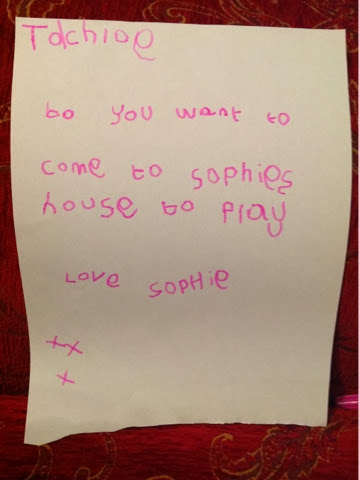 Tdchioe
bo you want to
come to sophies
house to play
Love SOPHie
xx
x